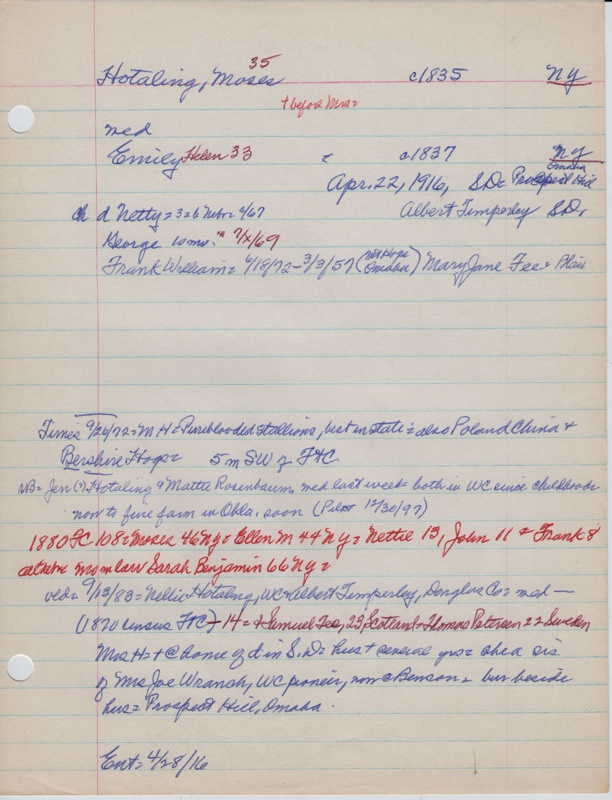 35
Hotaling, Moses c1835 NY
+ before Mrs=
med
Emily Helen 33 c1837 NY
Omaha
Apr. 22, 1916, S.D= Prospect Hill
ch d Netty = 3 26 Nebr= 2/67 Albert Timperley S.D,
George 10 mo. " 7/x/69
Frank William = 6/18/72 - 3/3/57 (Mt Hope Omaha) Mary Jane Fee + Plain
Times 9/26/72 = M H = Pureblooded stallions, best in state = also Poland China +
Bershire Hogs = 5 m SW of FtC
NB= Jen (?) Hotaling + Mattie Rosenbaum med last week both in WC since childhood
now to fine farm in Okla. soon (Pilot 12/30/97)
1880 FC 108 = Moses 46 NY = Ellen M 44 NY = Nettie 13, John 11 + Frank 8
all Nebr mom law Sarah Benjamin 66 NY =
ved = 9/13/83 = Nellie Hotaling, WC + Albert Timperley, Douglas Co = med —
(1870 census FtC) - 14 = + Samuel Fee, 23, Scotland + Thomas Petersen 22 Sweden
Mrs H = + @ home of d in S.D = hus + several yrs = she a sis
of Mrs Joe Wranch, WC pioneer, now @ Benson = bur beside
hus = Prospect Hill, Omaha.
Ent = 4/28/16